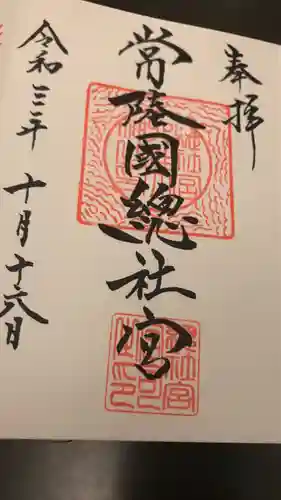 奉拝
常陸國總社宮
令和三年 十月十六日